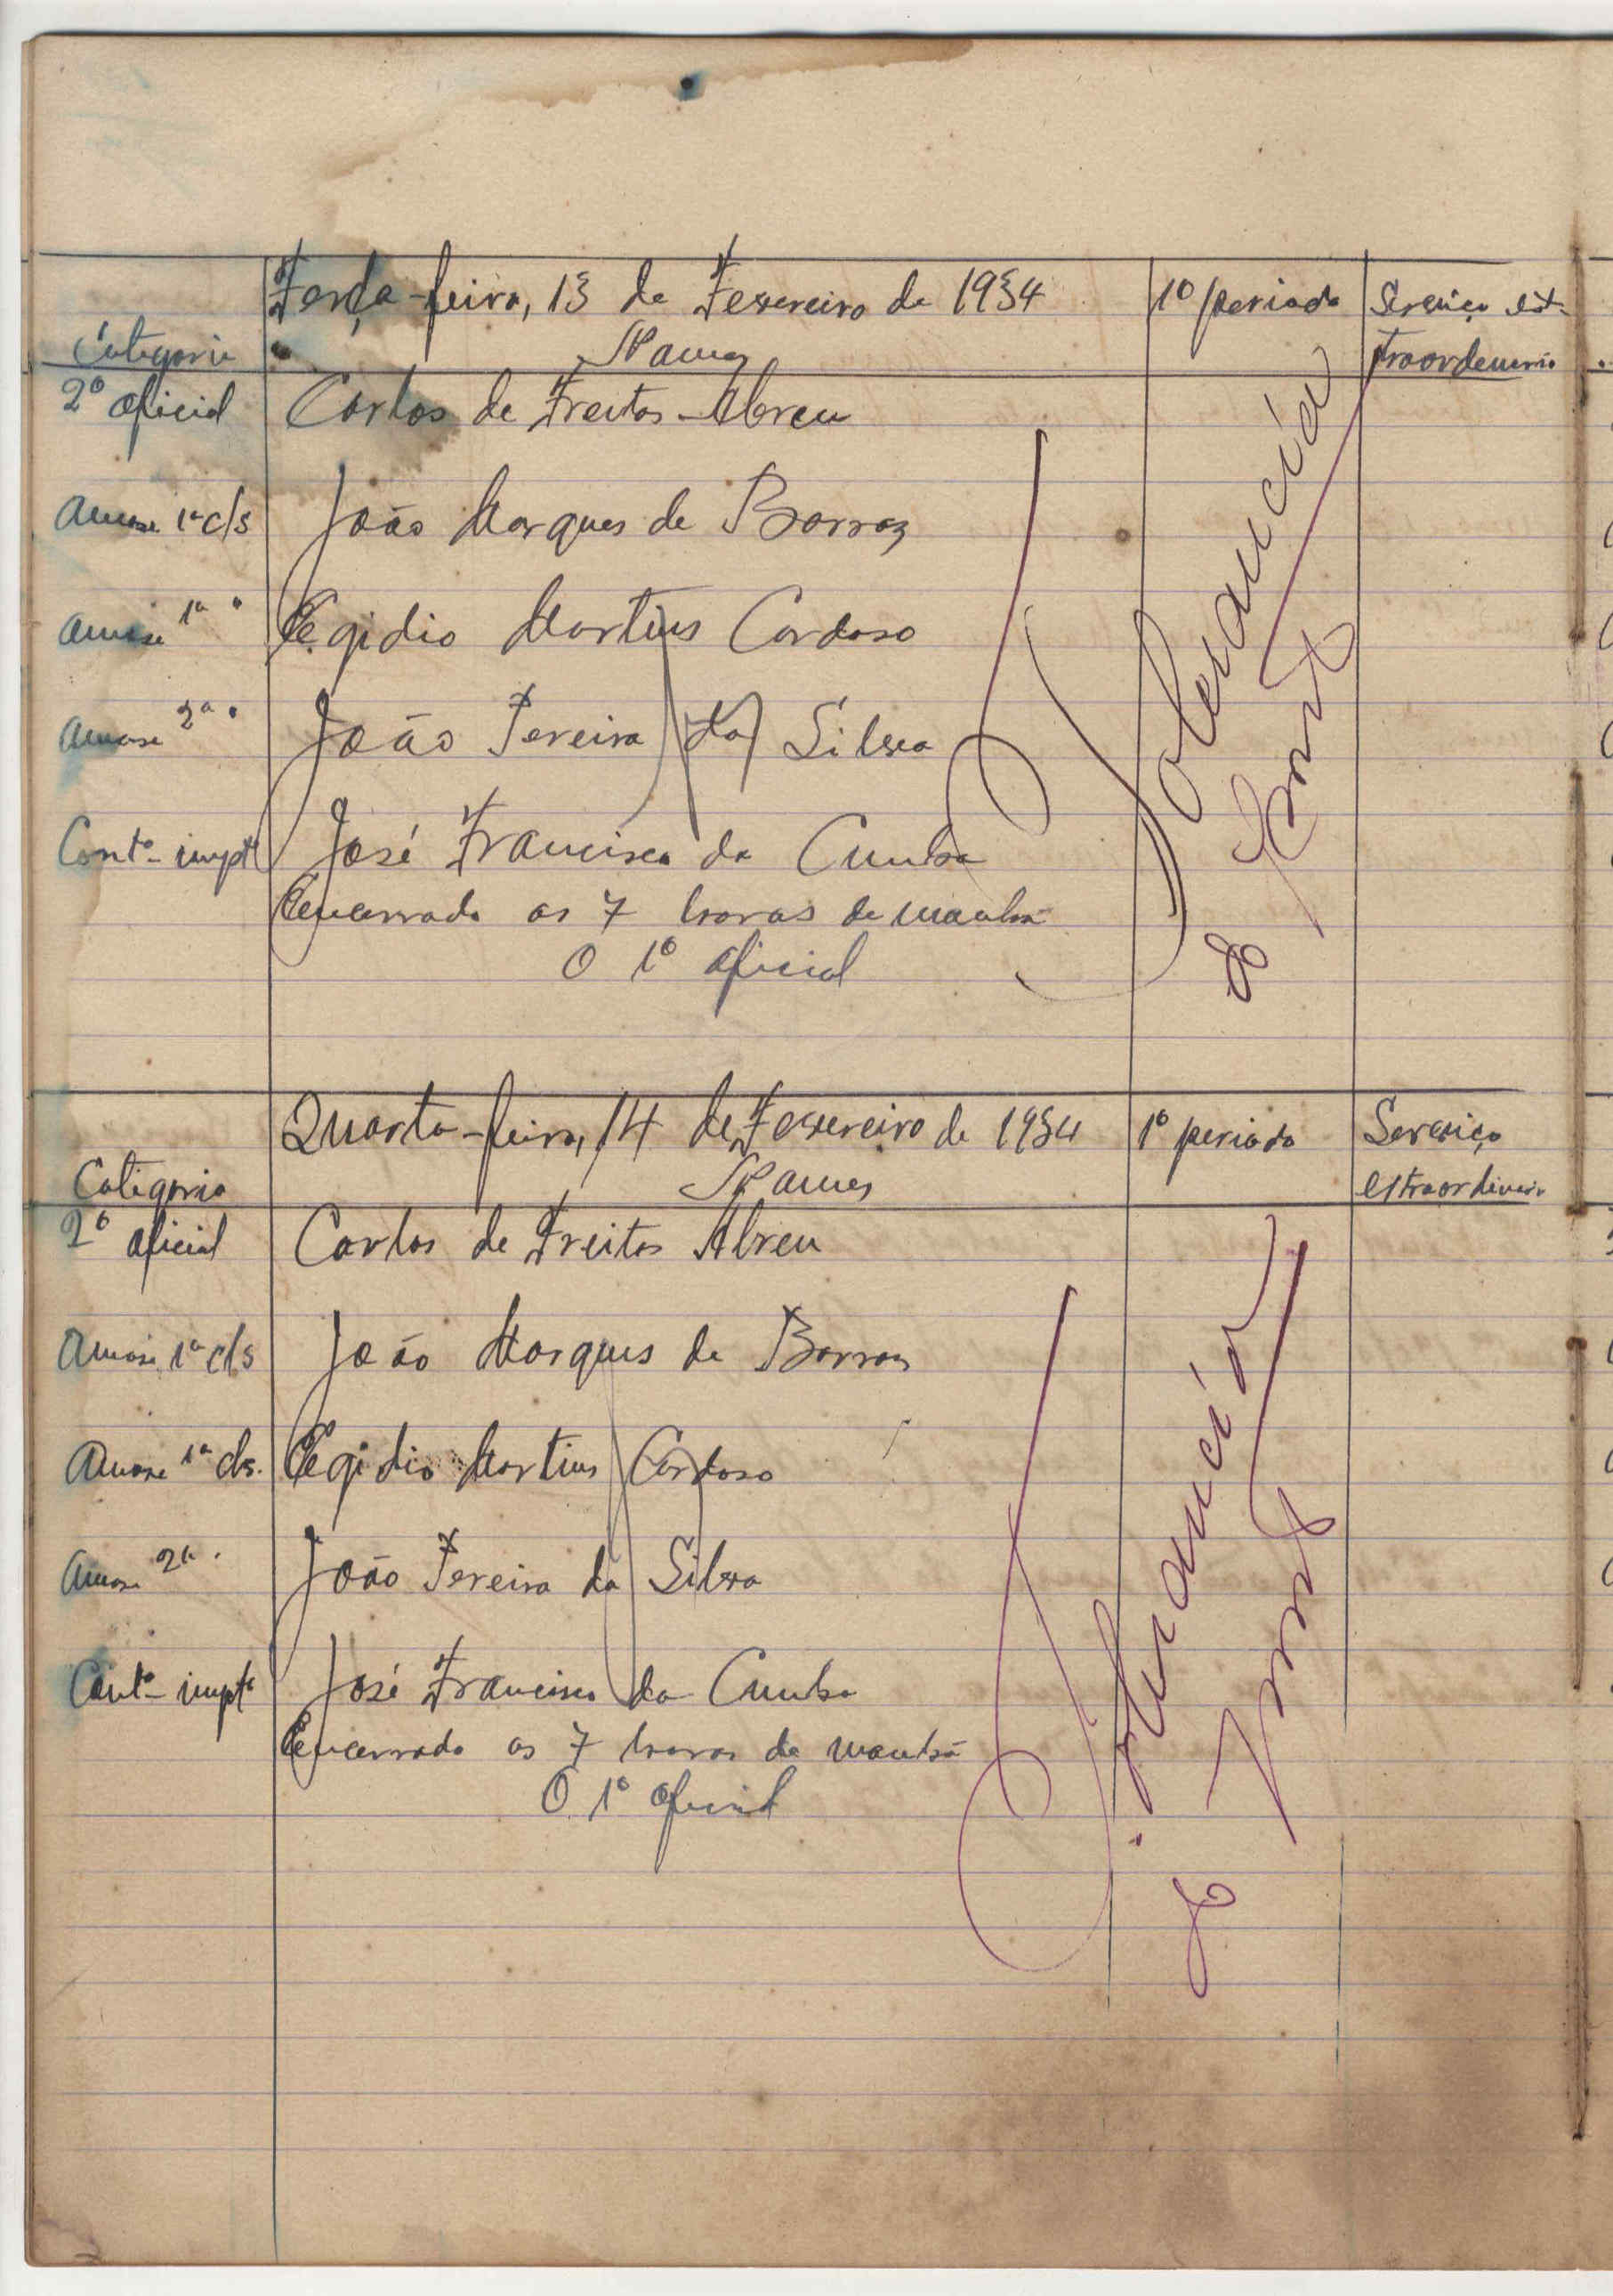 Terça-feira, 13 de Fevereiro de 1934
1º periodo
Serviço ext-
traordenario
Categoria
Nomes
2º oficial Carlos de Freitas Abreu
1ª cls João Marques de Barros
1ª " Egidio Martins Cardoso
2ª " João Pereira da Silva
Contº impte José Francisco da Cunha
Encerrado as 7 horas da manhã
O 1º oficial
Tolerancia
de Ponto
Quarta-feira, 14 de Fevereiro de 1934
1º periodo
Serviço
Categoria
Nomes
extraordinario
2º oficial Carlos de Freitas Abreu
1ª cls João Marques de Barros
1ª cls. Egidio Martins Cardoso
2ª " João Pereira da Silva
Contº impte José Francisco da Cunha
Encerrado as 7 horas da manhã
O 1º oficial
Tolerancia
de Ponto